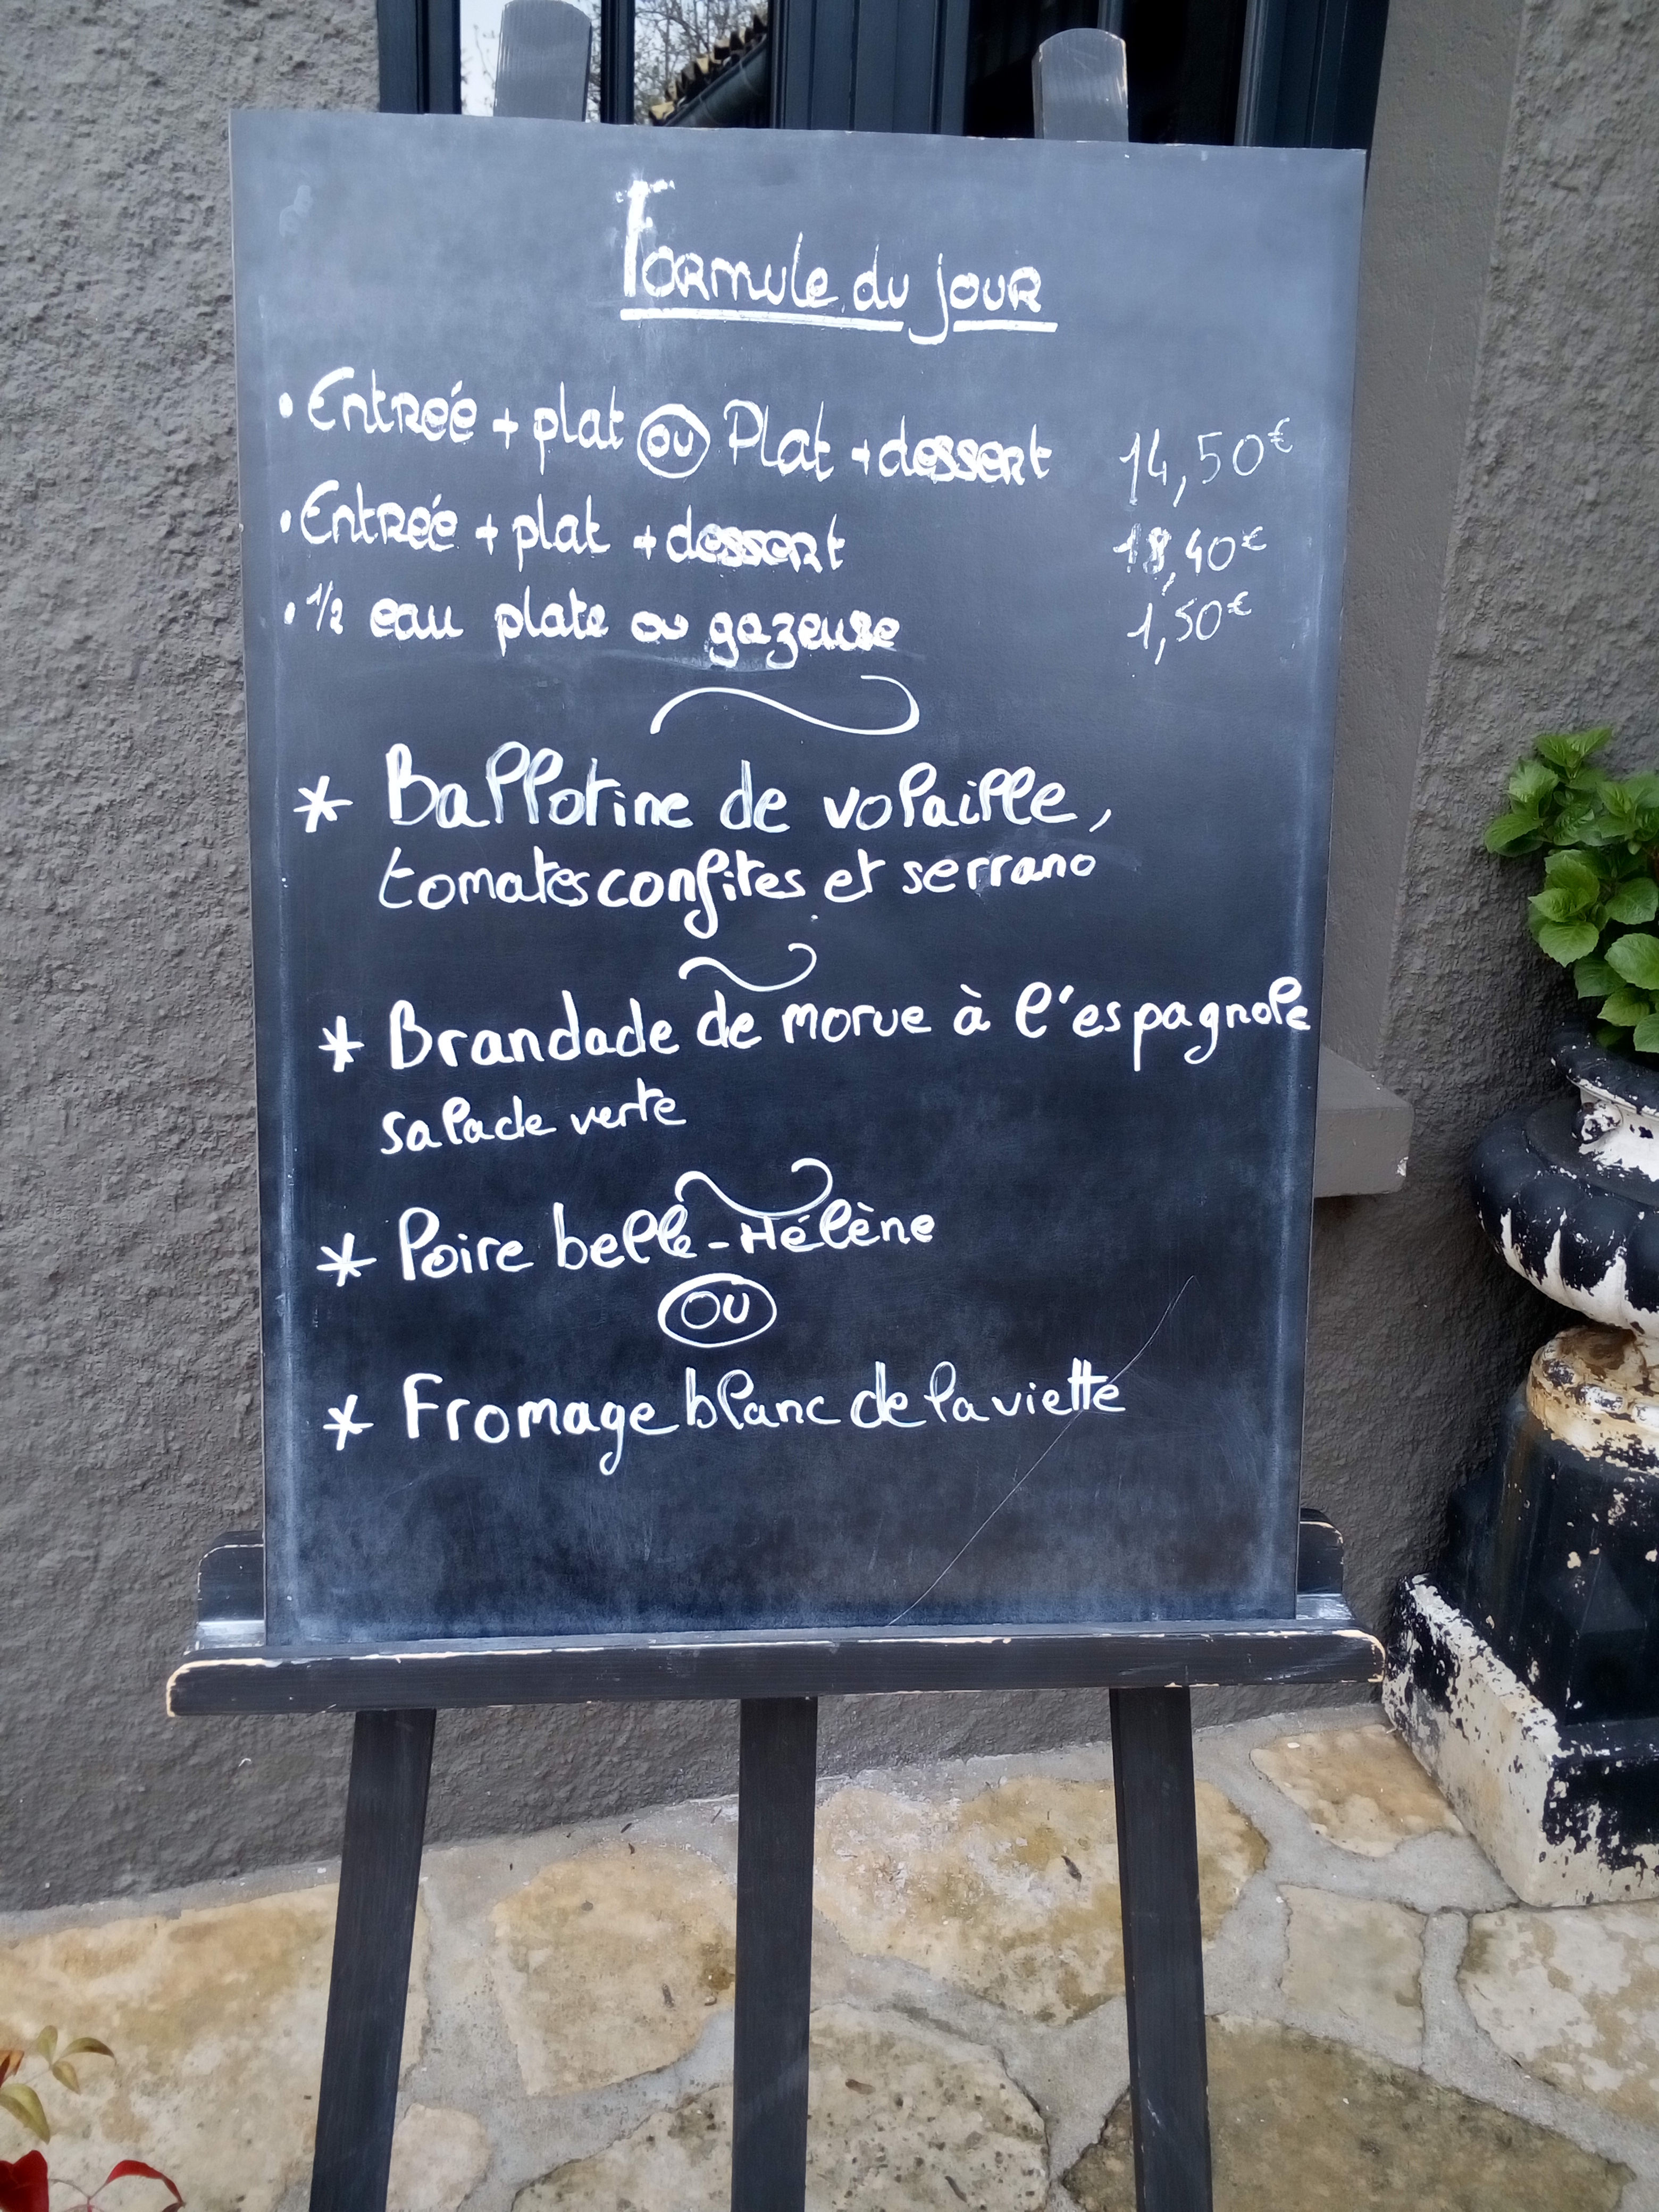 Formule du jour
• Entrée + plat ou Plat + dessert 14,50€
• Entrée + plat + dessert 18,40€
• 1/2 eau plate ou gazeuse 1,50€
* Ballotine de volaille,
tomates confites et serrano
* Brandade de morue à l'espagnole
salade verte
* Poire belle-Hélène
ou
* Fromage blanc de la viette